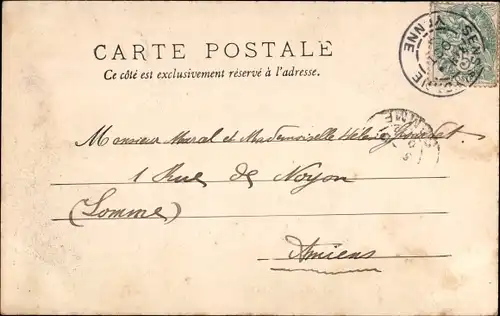 CARTE POSTALE
Ce côté est exclusivement réservé à l'adresse.
SENS
YONNE
Monsieur Marcel et Mademoiselle Hélène
1 Rue de Noyon
(Somme)
Amiens